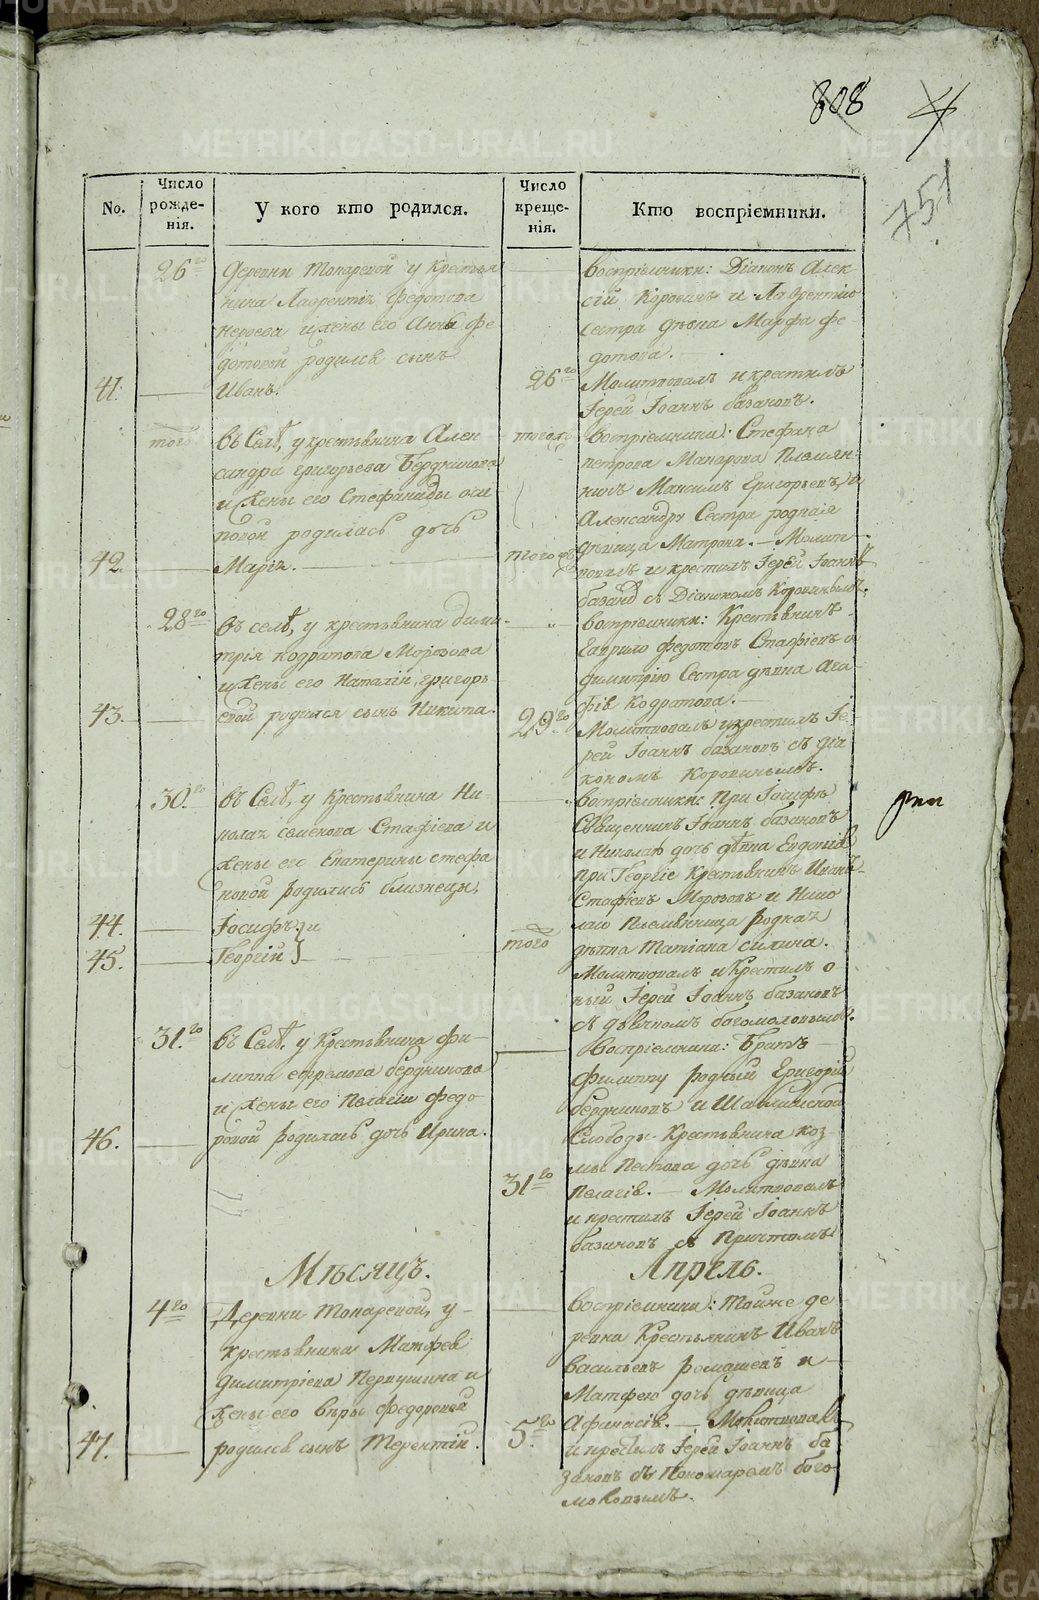 808 4
751
No.
Число рожде-нія.
У кого кто родился.
Число креще-нія.
Кто воспріемники.
26го
Деревни Токаревой у Крестья
нина Лаврентія Федотова
и жены его Анны Фе
дотовой родился сынъ
41. Иванъ.
Воспріемники: Діаконъ Алек
сій Коровинъ и Лаврентію
сестра дѣвка Марфа Фе
дотова.
26го
Молитвовалъ и крестилъ
Іерей Іоаннъ базановъ.
того
въ Селѣ, у крестьянина Алек
сандра григорьева Бердникова
и жены его Стефаниды оси
повой родилась дочь
42. Марія.
того
воспріемники: Стефана
петрова Макарова Племян-
никъ Максимъ Григорьевъ, и
Александру Сестра родная
дѣвица Матрона. — Молит
того
вовалъ и крестилъ Іерей Іоаннъ
базановъ съ Діакономъ Коровинымъ.
28го
въ селѣ, у крестьянина дими-
трія кодратова Морозова
и жены его Наталіи григорь
43. евой родился сынъ Никита.
воспріемники: Крестьянинъ
Гаврило федотовъ Стафіевъ и
димитрію Сестра дѣвка Ага
фія Кодратова. —
29го
Молитвовалъ и крестилъ Іе
рей Іоаннъ базановъ съ діа
кономъ Коровинымъ.
30го
въ Селѣ, у Крестьянина Ни-
колая семенова Стафіева и
жены его Екатерины стефа
новой родились близнецы,
44. Іосифъ, и
45. Георгій
воспріемники: при Іосифѣ
Священникъ Іоаннъ базановъ
и Николаю дочь дѣвка Евдокія
при Георгіе Крестьянинъ Иванъ
Стафіевъ Морозовъ и Нико
лаю Племянница Родная
того
дѣвка Татіана силина.
Молитвовалъ и Крестилъ о
ный Іерей Іоаннъ базановъ
съ дьячкомъ богомоловымъ.
31го
въ Селѣ. у Крестьянина фи-
липпа ефремова бердникова
и жены его Пелагіи федо
46. ровой родилась дочь Ирина.
Воспріемники: Братъ
Филиппу родный Григорій
бердниковъ и
Слободы Крестьянина коз-
мы Пестова дочь дѣвка
31го
Пелагія. — Молитвовалъ
и крестилъ Іерей Іоаннъ
базановъ съ Причтомъ
Мѣсяцъ. Апрель.
4го
Деревни Токаревой, у
крестьянина Матфея
Димитріева Первушина и
жены его вѣры федоровой
47. родился сынъ Терентій.
воспріемники: Тойже де
ревни Крестьянинъ Иванъ
васильевъ Ромашевъ и
Матфею дочь дѣвица
5го
Афанасія. — Молитвовалъ
и крестилъ Іерей Іоаннъ ба
зановъ съ Пономаремъ бого-
моловымъ.
METRIKI.GASO-URAL.RU